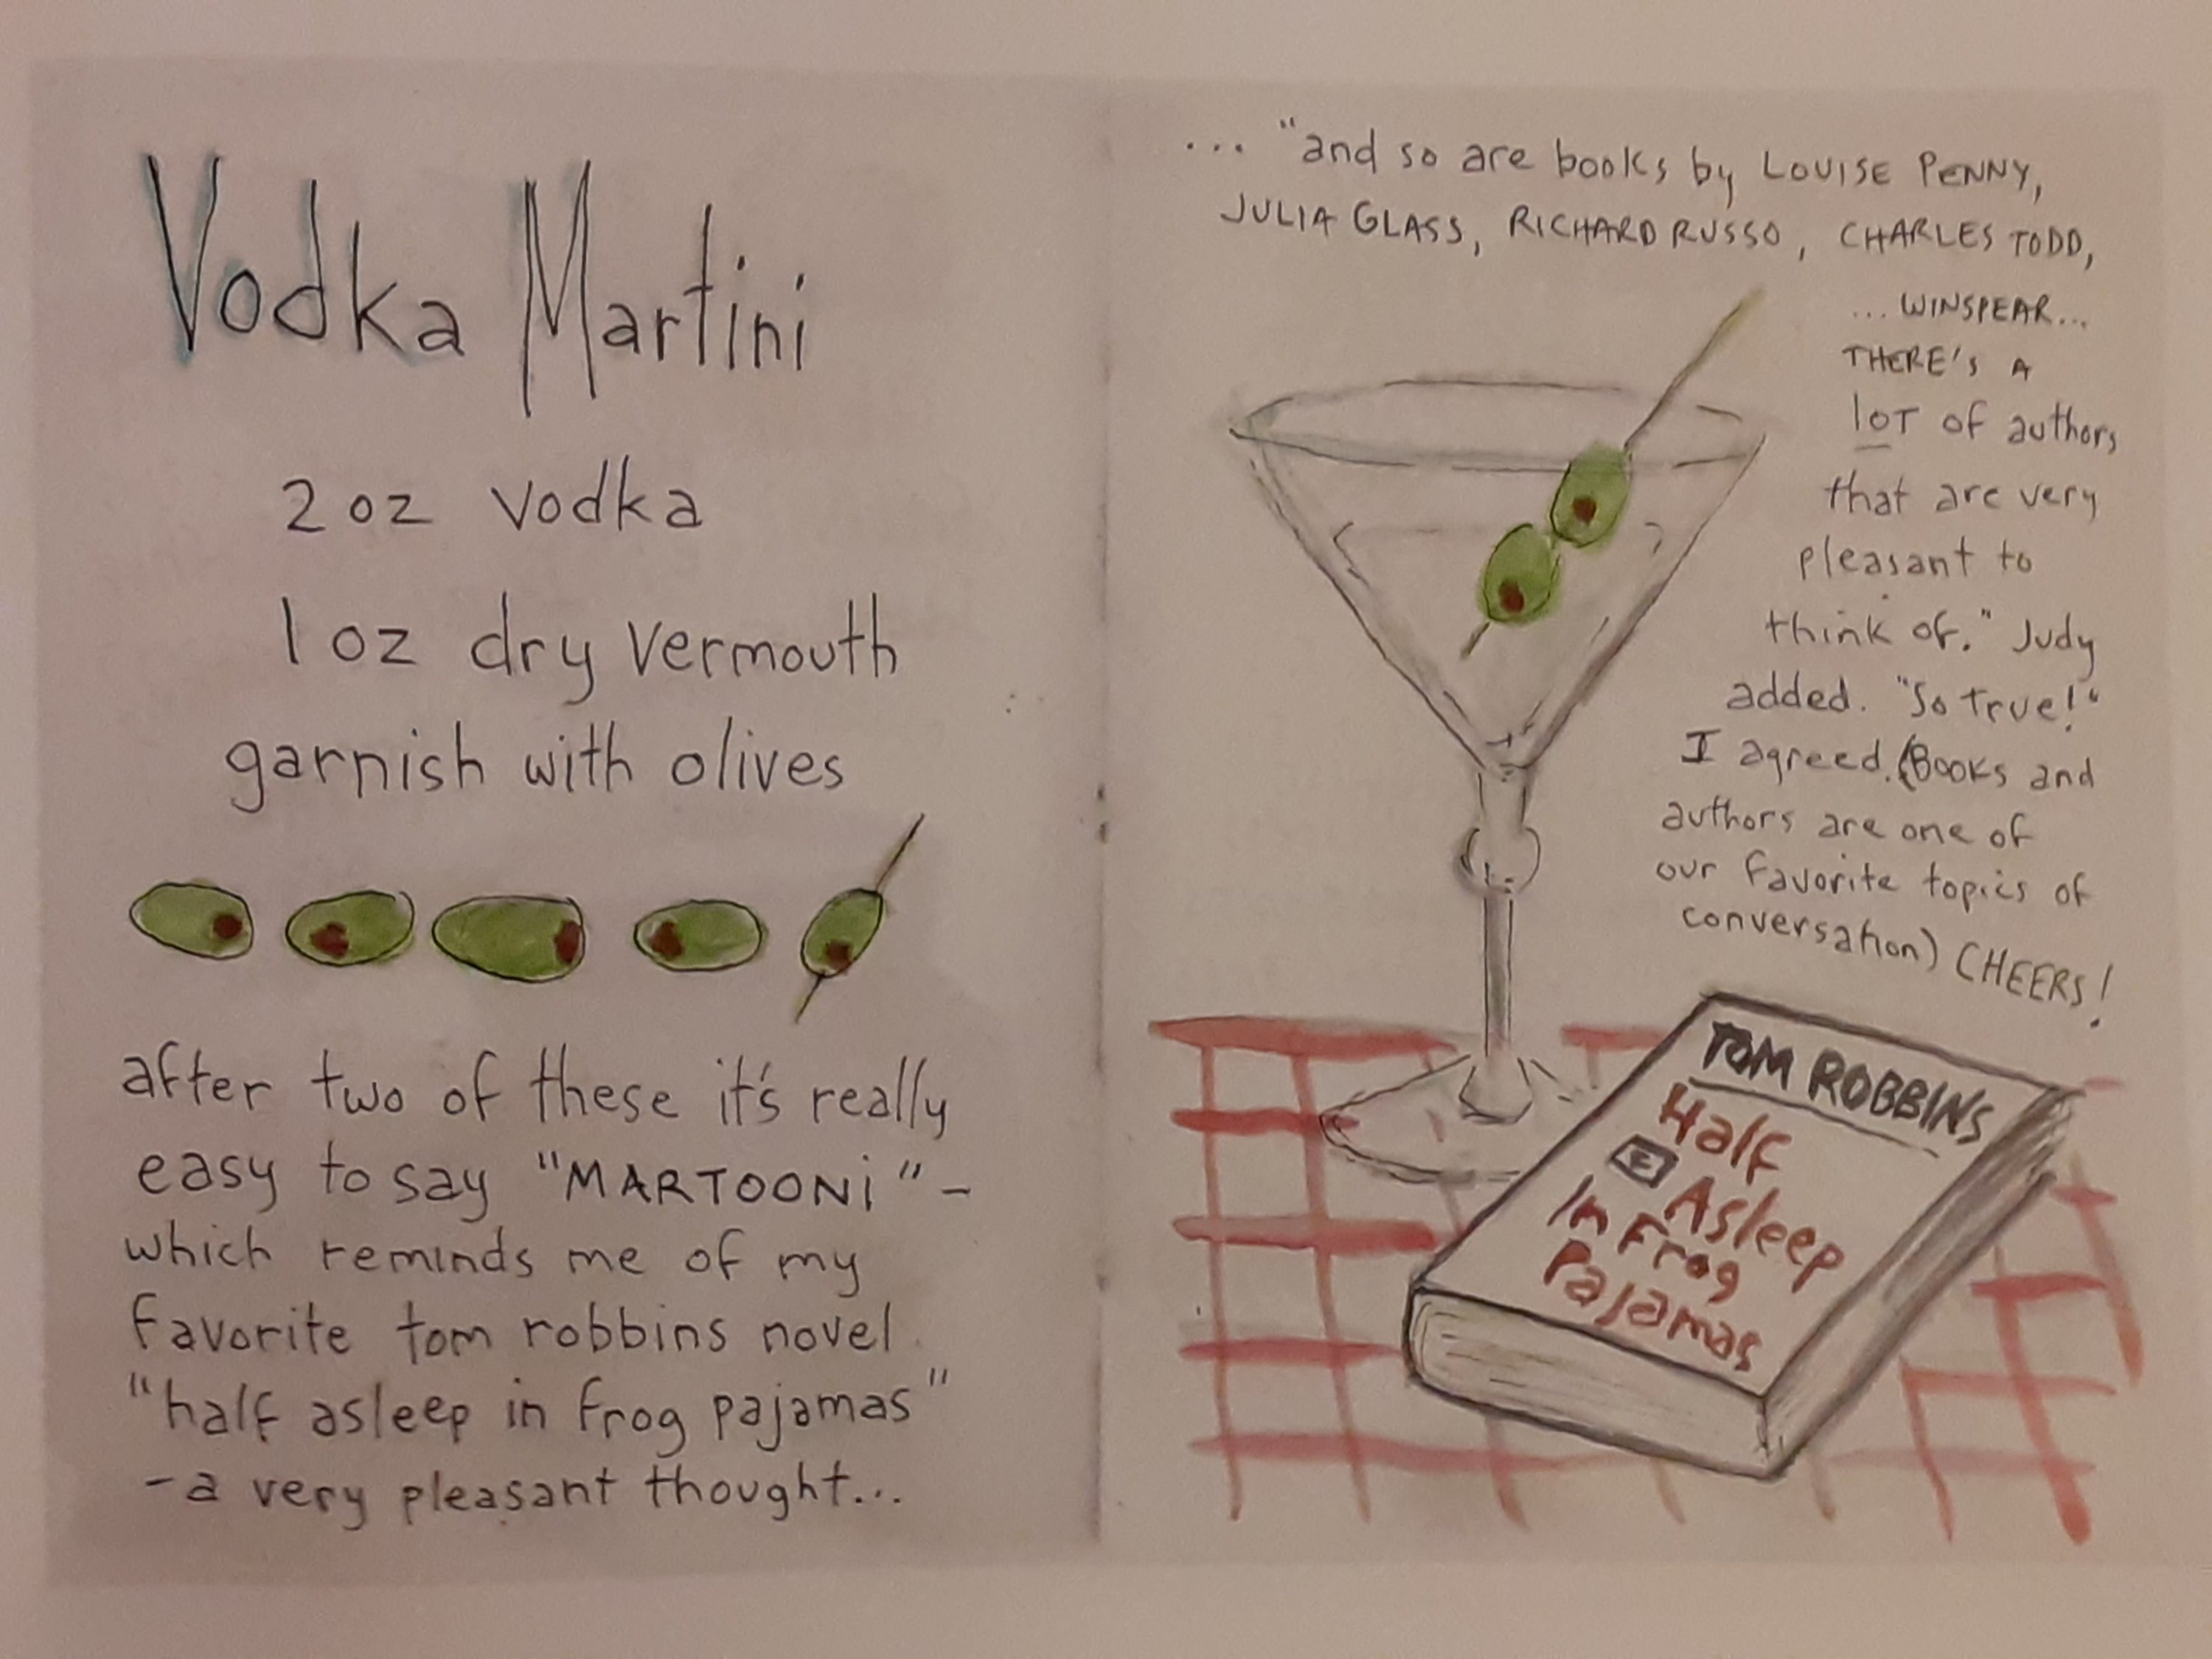 Vodka Martini
2 oz vodka
1 oz dry vermouth
garnish with olives
after two of these it's really
easy to say "MARTOONi" -
which reminds me of my
favorite tom robbins novel
"half asleep in frog pajamas"
- a very pleasant thought...
... "and so are books by LOUISE PENNY,
JULIA GLASS, RICHARD RUSSO, CHARLES TODD,
... WINSPEAR...
THERE'S A
lOT of authors
that are very
pleasant to
think of." Judy
added. "So true!"
I agreed. (Books and
authors are one of
our favorite topics of
conversation) CHEERS!
TOM ROBBINS
Half
E Asleep
In Frog
Pajamas